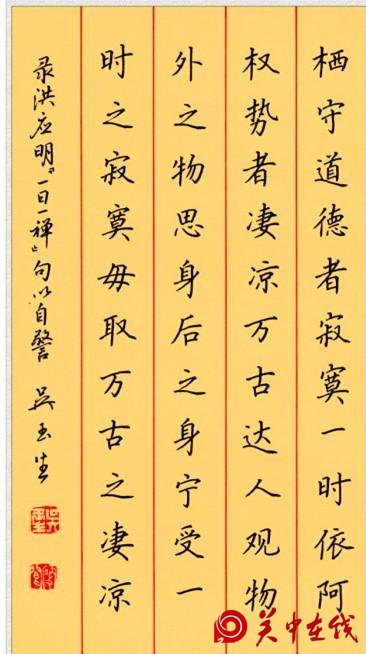 栖守道德者寂寞一时依阿
权势者凄凉万古达人观物
外之物思身后之身宁受一
时之寂寞毋取万古之凄凉
录洪应明《一日一禅》句以自警 吴玉生
关中在线